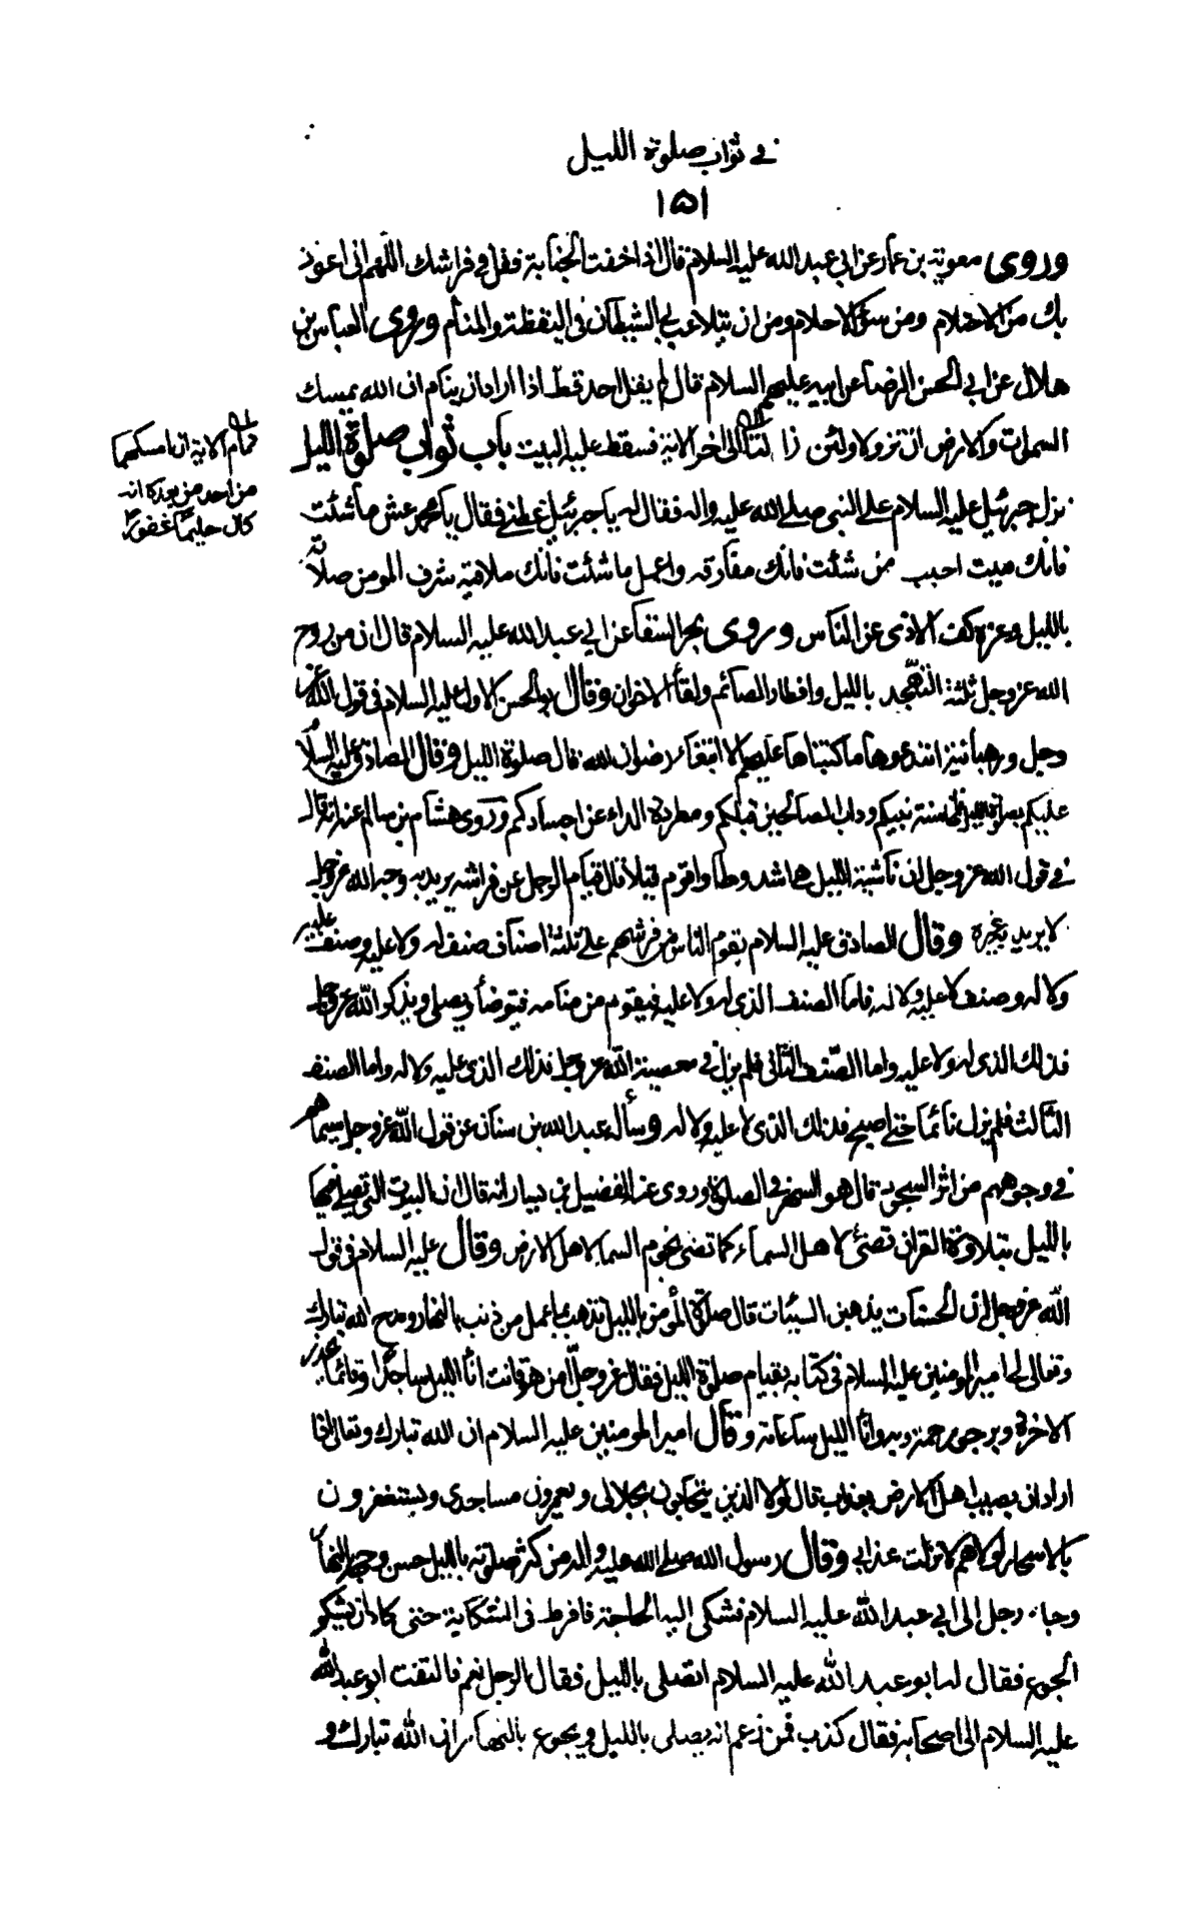 في ثواب صلوة الليل
١٥١
وروى معوية بن عمار عن ابي عبد الله عليه السلام قال اذا خفت الجنابة فقل في فراشك اللهم اني اعوذ
بك من الاحتلام ومن سوء الاحلام ومن ان يتلاعب بي الشيطان في اليقظة والمنام وروى العباس بن
هلال عن ابي الحسن الرضا عن ابيه عليهم السلام قال لم يقل احد قط اذا اراد ان ينام ان الله يمسك
السموات والارض ان تزولا ولئن زالتا الى اخر الاية فسقط عليه البيت باب ثواب صلوة الليل
تمام الاية ان امسكهما
من احد من بعده انه
كان حليما غفورا
نزل جبرئيل عليه السلام على النبي صلى الله عليه واله فقال له يا جبرئيل عظني فقال يا محمد عش ما شئت
فانك ميت احبب من شئت فانك مفارقه واعمل ما شئت فانك ملاقيه شرف المومن صلاته
بالليل وعزه كف الاذى عن الناس وروى بحر السقا عن ابي عبد الله عليه السلام قال ان من روح
الله عز وجل ثلثة التهجد بالليل وافطار الصائم ولقاء الاخوان وقال ابو الحسن الاول عليه السلام في قول الله عز
وجل ورهبانية ابتدعوها ما كتبناها عليهم الا ابتغاء رضوان الله قال صلوة الليل وقال الصادق عليه السلام
عليكم بصلوة الليل فانها سنة نبيكم وداب الصالحين قبلكم ومطردة الداء عن اجسادكم وروى هشام بن سالم عنه انه قال
في قول الله عز وجل ان ناشئة الليل هي اشد وطا واقوم قيلا قال قيام الرجل عن فراشه يريد به وجه الله عز وجل
لا يريد به غيره وقال الصادق عليه السلام يقوم الناس من فرشهم على ثلثة اصناف صنف له ولا عليه وصنف عليه
ولا له وصنف لا عليه ولا له فاما الصنف الذي له ولا عليه فيقوم من منامه فيتوضأ ويصلي ويذكر الله عز وجل
فذلك الذي له ولا عليه واما الصنف الثاني فلم يزل في معصية الله عز وجل فذلك الذي عليه ولا له واما الصنف
الثالث فلم يزل نائما حتى اصبح فذلك الذي لا عليه ولا له وسأله عبد الله بن سنان عن قول الله عز وجل سيماهم
في وجوههم من اثر السجود قال هو السهر في الصلوة وروى عن الفضيل بن يسار انه قال ان البيوت التي يصلى فيها
بالليل بتلاوة القران تضئ لاهل السماء كما تضئ نجوم السماء لاهل الارض وقال عليه السلام في قول
الله عز وجل ان الحسنات يذهبن السيئات قال صلوة المؤمن بالليل تذهب بما عمل من ذنب بالنهار ومدح الله تبارك
وتعالى امير المومنين عليه السلام في كتابه بقيام صلوة الليل فقال عز وجل امن هو قانت اناء الليل ساجدا وقائما يحذر
الاخرة ويرجو رحمة ربه واناء الليل ساعاته وقال امير المومنين عليه السلام ان الله تبارك وتعالى اذا
اراد ان يصيب اهل الارض بعذاب قال لولا الذين يتحابون بجلالي ويعمرون مساجدي ويستغفرون
بالاسحار لولاهم لانزلت عذابي وقال رسول الله صلى الله عليه واله من كثر صلوته بالليل حسن وجهه بالنهار
وجاء رجل الى ابي عبد الله عليه السلام فشكى اليه الحاجة فافرط في الشكاية حتى كاد ان يشكو
الجوع فقال له ابو عبد الله عليه السلام اتصلى بالليل فقال الرجل نعم فالتفت ابو عبد الله
عليه السلام الى اصحابه فقال كذب من زعم انه يصلى بالليل ويجوع بالنهار ان الله تبارك و